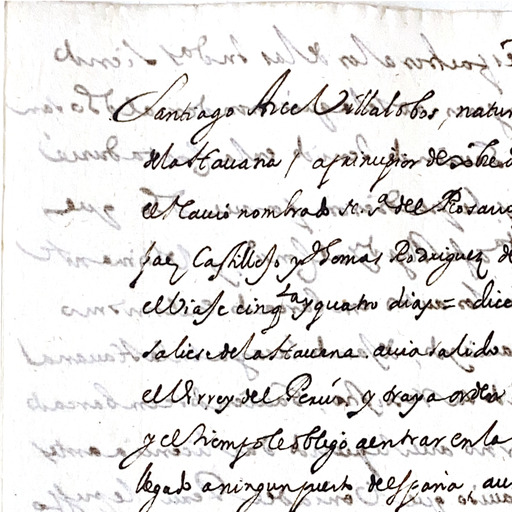 Santiago Arce Villalobos, natur
de la Hauana / a prinçipios de xbre d
el Nauio nombrado N. S.ª del Rosario
saez Castillejo y Thomas Rodriguez de
el Viaje cinq.ta y quatro dias = dice
saliese de la Hauana auia salido
el Virrey del Perú, y traya orden
y el tiempo le obligó a entrar en la
llegado a ningun puerto de españa, au